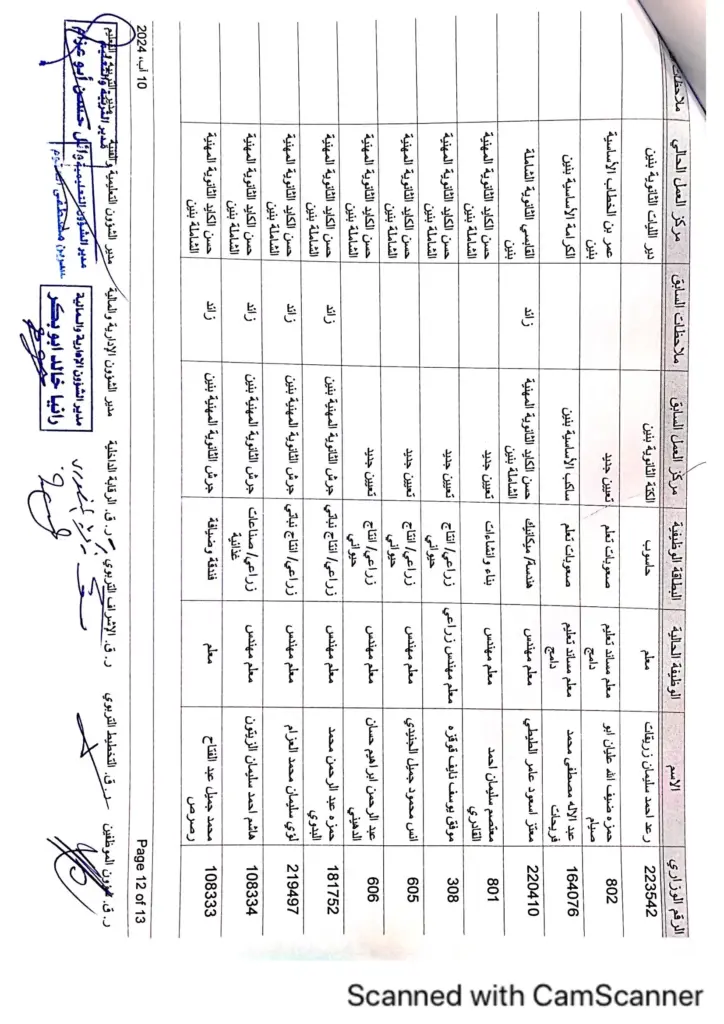 الرقم الوزاري الاسم الوظيفة الحالية البطاقة الوظيفية مركز العمل السابق ملاحظات السابق مركز العمل الحالي ملاحظات
223542 رعد احمد سليمان زريقات معلم حاسوب الكتة الثانوية بنين دير الليات الثانوية بنين
802 حمزه ضيف الله عليان ابو صيام معلم مساند تعليم دامج صعوبات تعلم تعيين جديد عمر بن الخطاب الأساسية بنين
164076 عبد الاله مصطفى محمد فريحات معلم مساند تعليم دامج صعوبات تعلم ساكب الأساسية بنين الكرامة الأساسية بنين
220410 معتز اسعود عامر الطيطي معلم مهندس هندسة/ ميكانيك حسن الكايد الثانوية المهنية الشاملة بنين زائد القابسي الثانوية الشاملة بنين
801 معتصم سليمان احمد القادري معلم مهندس بناء وانشاءات تعيين جديد حسن الكايد الثانوية المهنية الشاملة بنين
308 موفق يوسف نايف قوقزه معلم مهندس زراعي زراعي/ انتاج حيواني تعيين جديد حسن الكايد الثانوية المهنية الشاملة بنين
605 انس محمود جميل الجنيدي معلم مهندس زراعي/ انتاج حيواني تعيين جديد حسن الكايد الثانوية المهنية الشاملة بنين
606 عبد الرحمن ابراهيم حسان الدهيني معلم مهندس زراعي/ انتاج حيواني تعيين جديد حسن الكايد الثانوية المهنية الشاملة بنين
181752 حمزه عبد الرحمن محمد البدوي معلم مهندس زراعي/ انتاج نباتي جرش الثانوية المهنية بنين زائد حسن الكايد الثانوية المهنية الشاملة بنين
219497 لؤي سليمان محمد العزام معلم مهندس زراعي/ انتاج نباتي جرش الثانوية المهنية بنين زائد حسن الكايد الثانوية المهنية الشاملة بنين
108334 هاشم احمد سليمان الزيتون معلم مهندس زراعي/ صناعات غذائية جرش الثانوية المهنية بنين زائد حسن الكايد الثانوية المهنية الشاملة بنين
108333 محمد جميل عبد الفتاح رصرص معلم فندقة وضيافة جرش الثانوية المهنية بنين زائد حسن الكايد الثانوية المهنية الشاملة بنين
Page 12 of 13
10 آب، 2024
ر. ق. شؤون الموظفين ر. ق. التخطيط التربوي ر. ق. الإشراف التربوي ر. ق. الرقابة الداخلية مدير الشؤون الإدارية والمالية مدير الشؤون التعليمية والفنية مدير التربية والتعليم
مدير الشؤون الإدارية والمالية
رانيا خالد ابو بكر
مدير الشؤون التعليمية
مدير التربية والتعليم
وائل حسن أبو عزام
Scanned with CamScanner